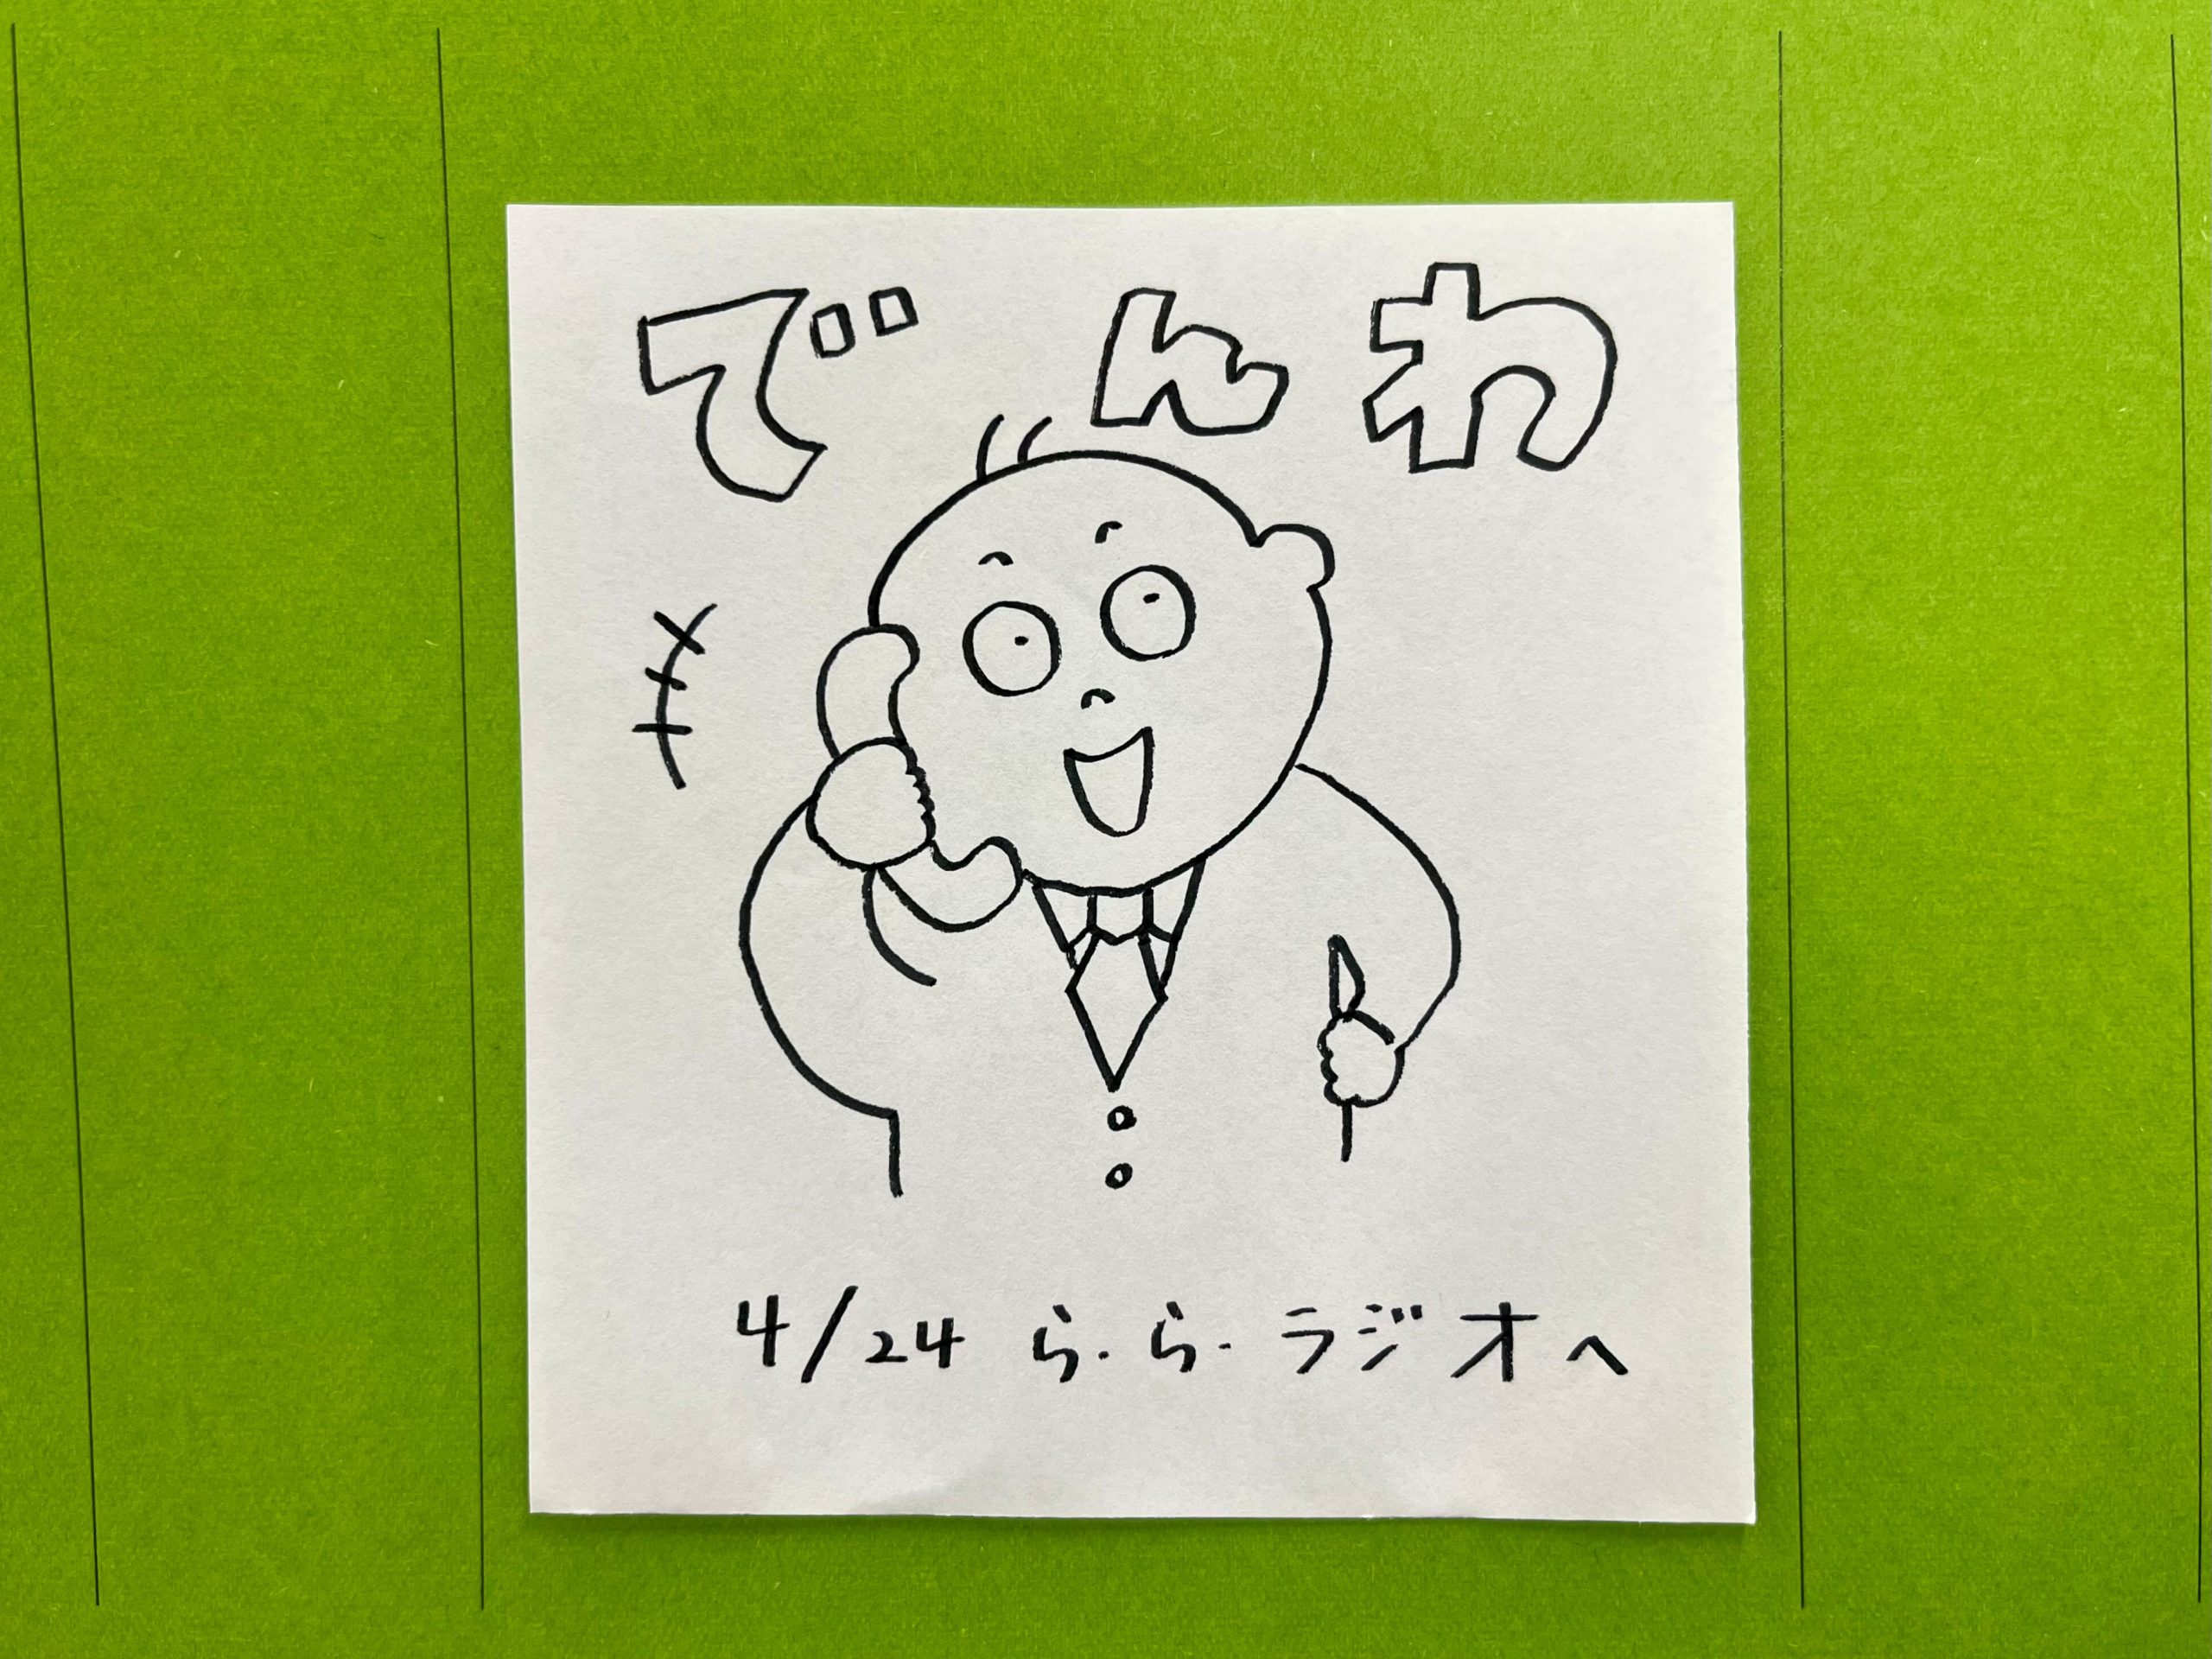 でんわ
4/24 ら.ら.ラジオへ